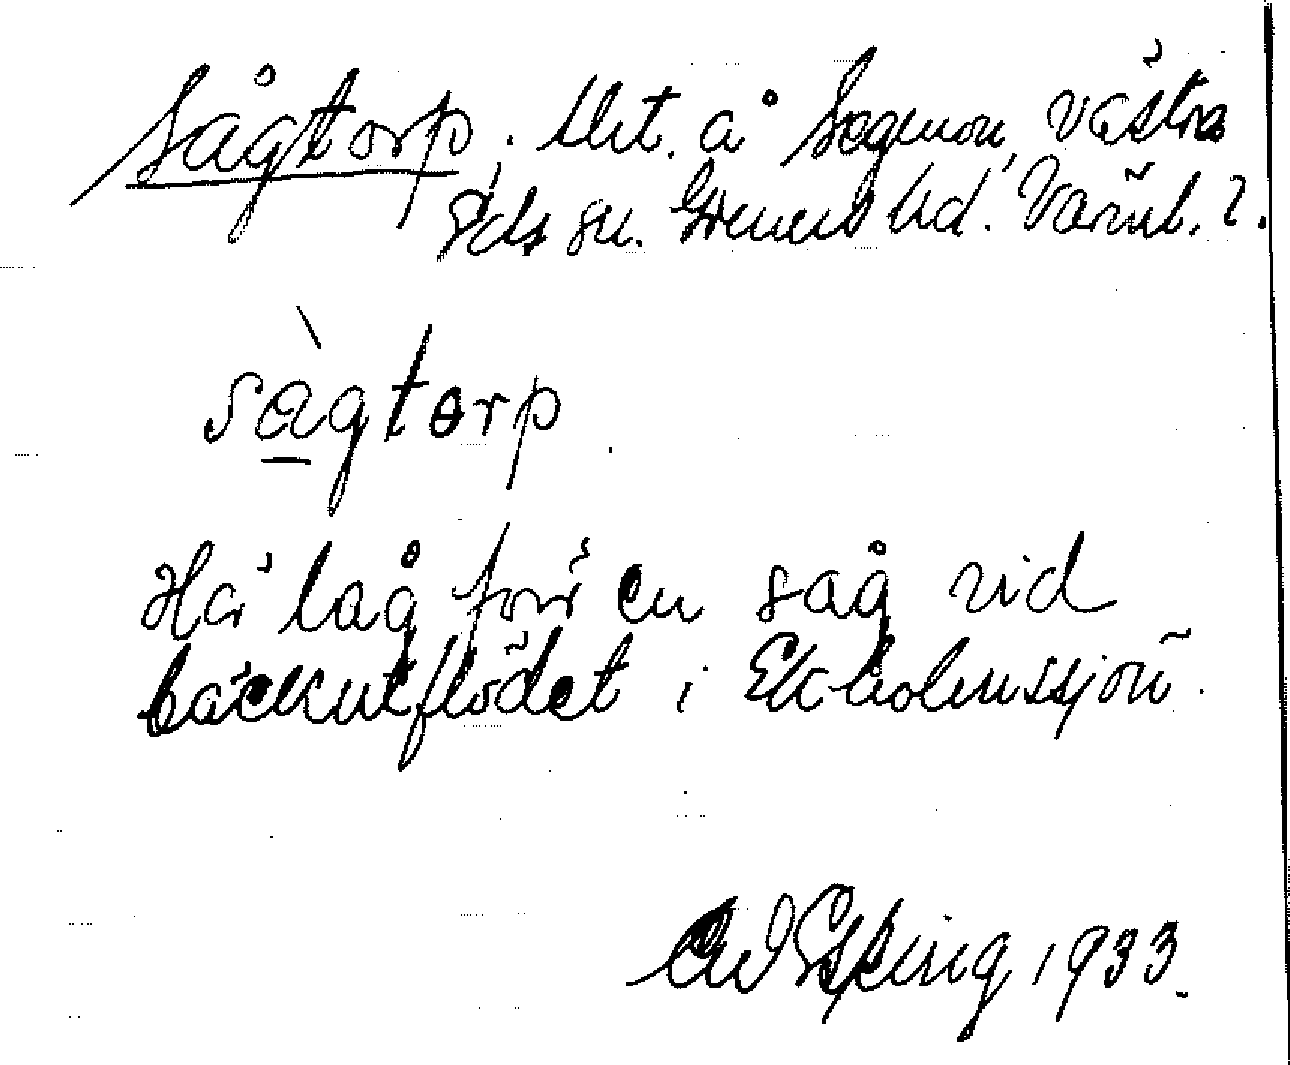 Sågtorp. Utt. å Sågmon, västra
Eds sn. Grums hd. Värml. 2.
sàgtorp
Här låg förr en såg vid
bäckutflödet i Ekholmssjön.
Erving 1933.